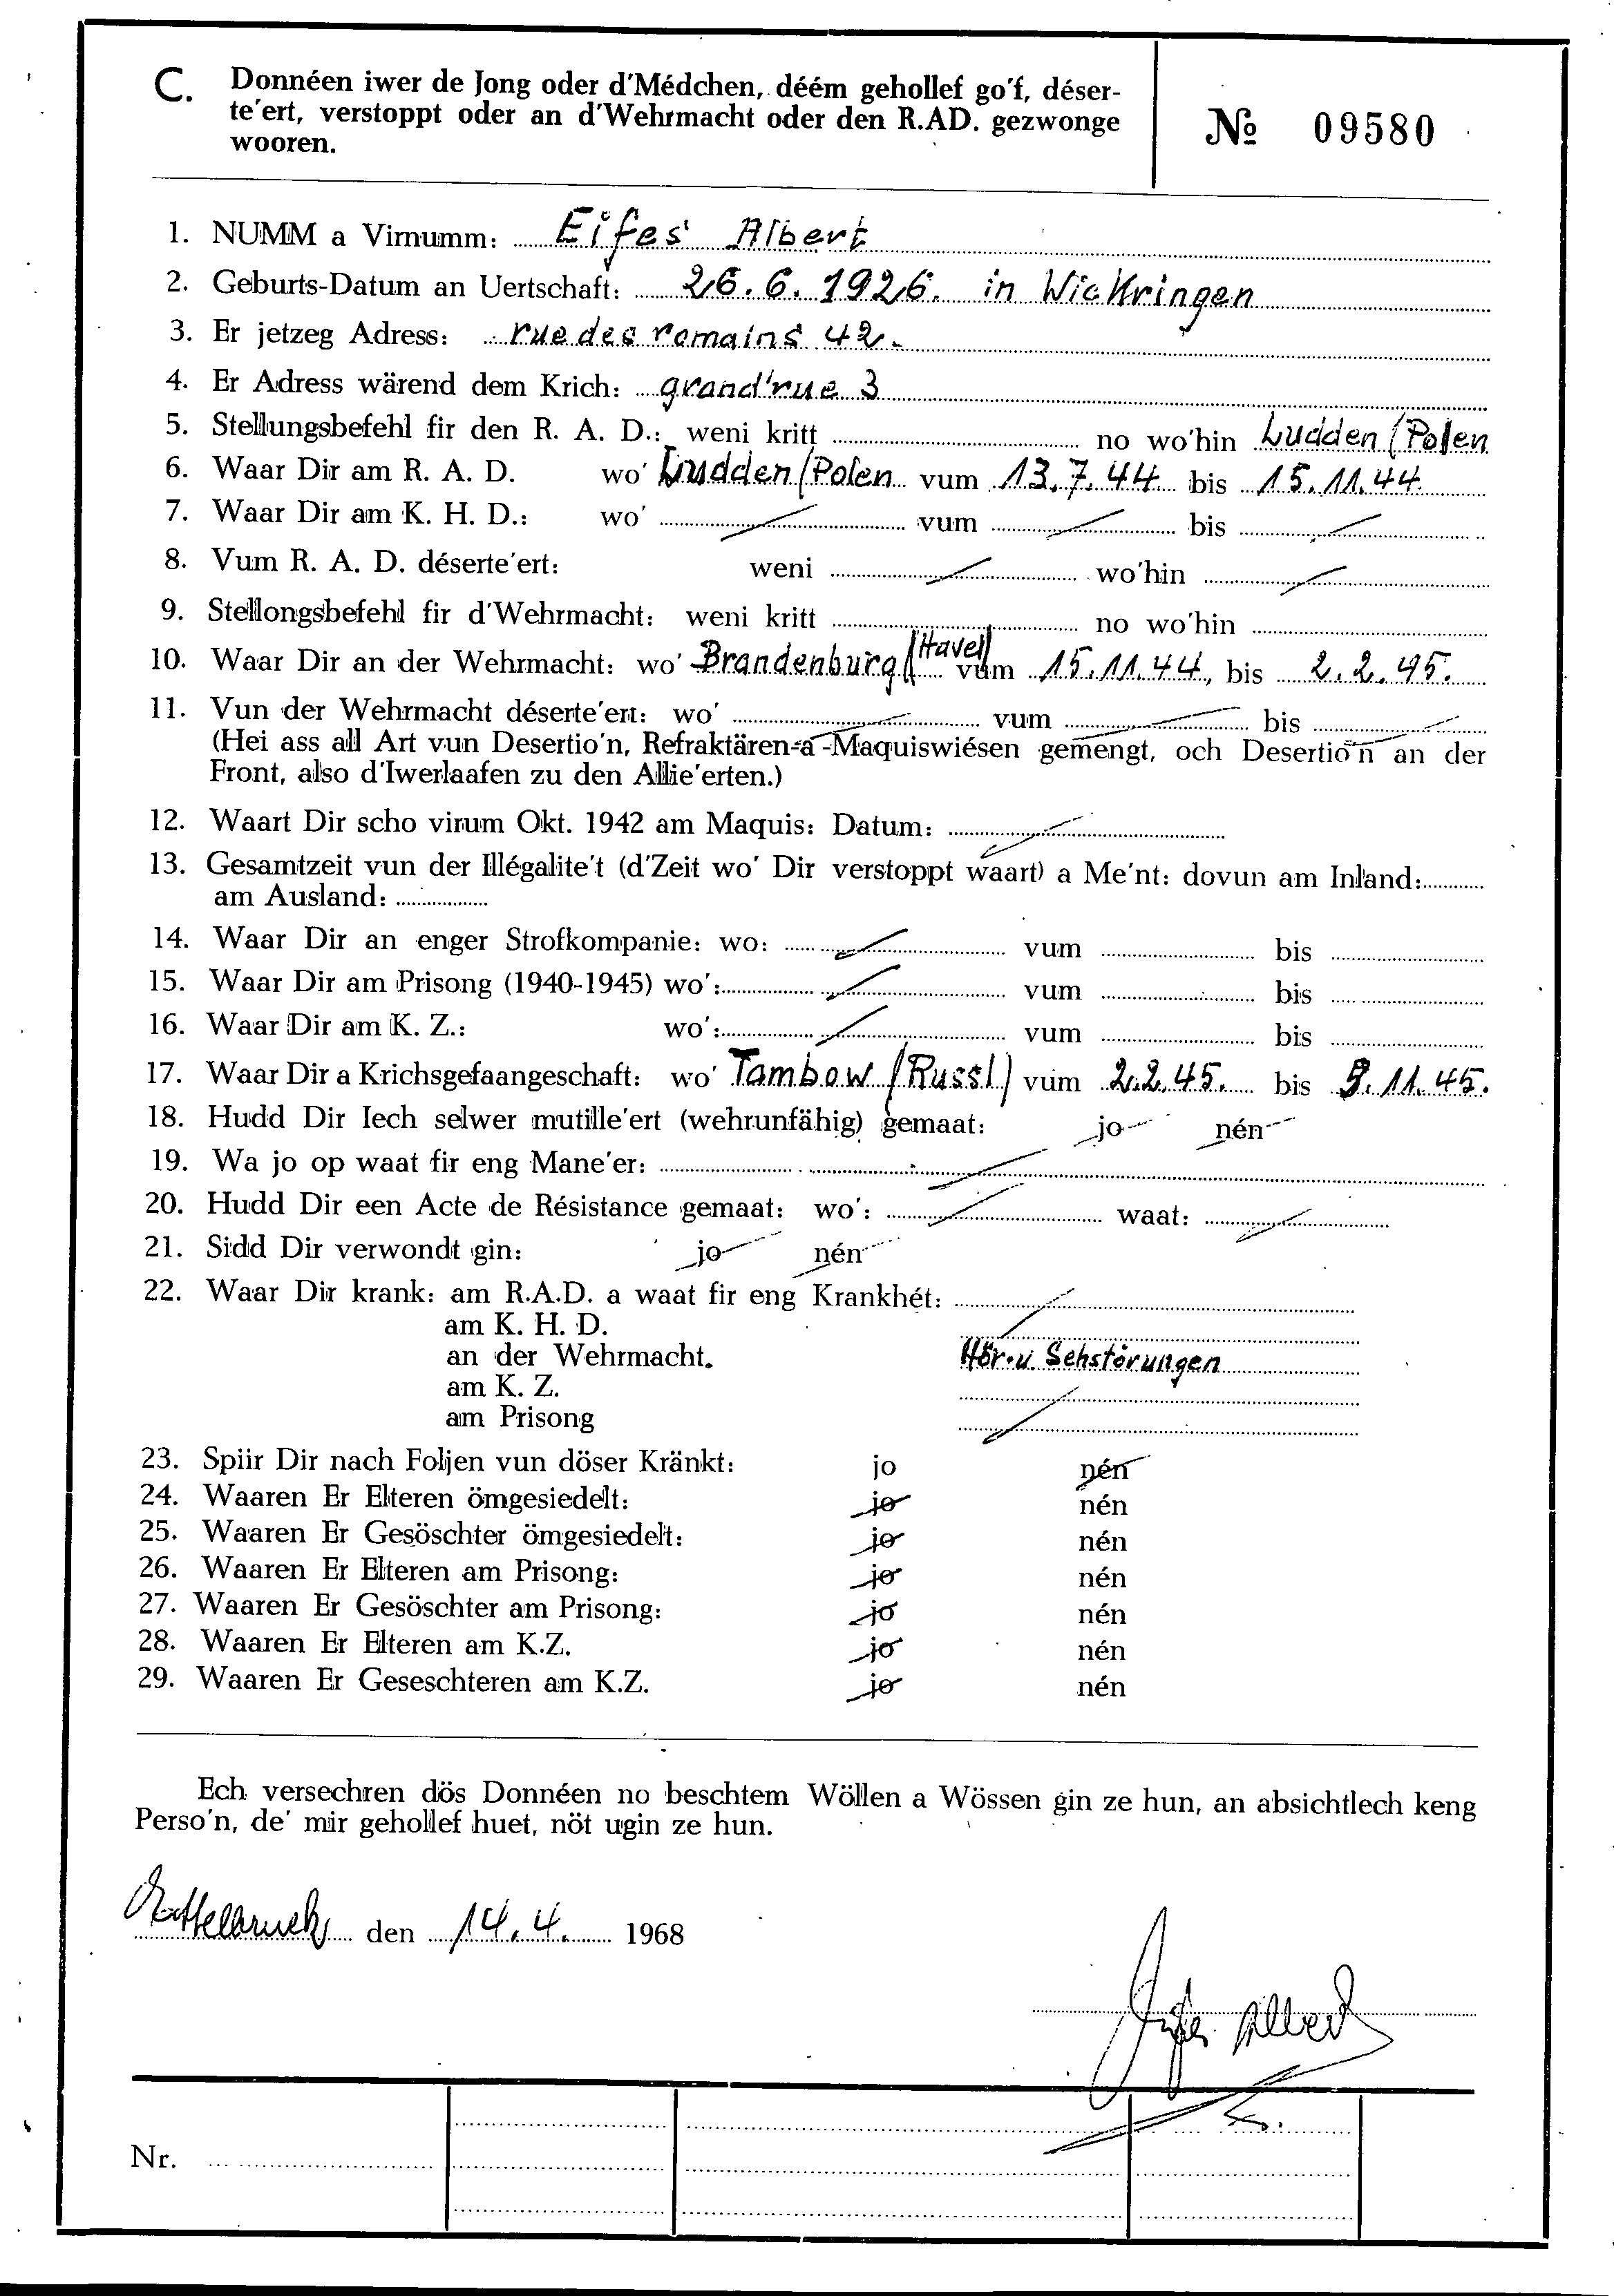 C. Donnéen iwer de Jong oder d'Médchen, déém gehollef go'f, déser-
te'ert, verstoppt oder an d'Wehrmacht oder den R.AD. gezwonge
wooren.
№ 09580
1. NUMM a Virnumm: Eifes Albert
2. Geburts-Datum an Uertschaft: 26.6.1926. in Wickringen
3. Er jetzeg Adress: rue des romains 42.
4. Er Adress wärend dem Krich: grand'rue 3
5. Stellungsbefehl fir den R. A. D.: weni kritt no wo'hin Ludden (Polen
6. Waar Dir am R. A. D. wo' Ludden (Polen vum 13.7.44 bis 15.11.44.
7. Waar Dir am K. H. D.: wo' vum bis
8. Vum R. A. D. déserte'ert: weni wo'hin
9. Stellongsbefehl fir d'Wehrmacht: weni kritt no wo'hin
10. Waar Dir an der Wehrmacht: wo' Brandenburg (Havel) vum 15.11.44., bis 2.2.45.
11. Vun der Wehrmacht déserte'ert: wo' vum bis
(Hei ass all Art vun Desertio'n, Refraktären-a-Maquiswiésen gemengt, och Desertio'n an der
Front, also d'Iwerlaafen zu den Allie'erten.)
12. Waart Dir scho virum Okt. 1942 am Maquis: Datum:
13. Gesamtzeit vun der Illégalite't (d'Zeit wo' Dir verstoppt waart) a Me'nt: dovun am Inland:
am Ausland:
14. Waar Dir an enger Strofkompanie: wo: vum bis
15. Waar Dir am Prisong (1940-1945) wo': vum bis
16. Waar Dir am K. Z.: wo': vum bis
17. Waar Dir a Krichsgefaangeschaft: wo' Tambow (Russl.) vum 2.2.45. bis 9.11.45.
18. Hudd Dir Iech selwer mutille'ert (wehrunfähig) gemaat: jo nén
19. Wa jo op waat fir eng Mane'er:
20. Hudd Dir een Acte de Résistance gemaat: wo': waat:
21. Sidd Dir verwondt gin: jo nén
22. Waar Dir krank: am R.A.D. a waat fir eng Krankhét:
am K. H. D.
an der Wehrmacht. Hör.u. Sehstörungen
am K. Z.
am Prisong
23. Spiir Dir nach Foljen vun döser Kränkt: jo nén
24. Waaren Er Elteren ömgesiedelt: jo nén
25. Waaren Er Gesöschter ömgesiedelt: jo nén
26. Waaren Er Elteren am Prisong: jo nén
27. Waaren Er Gesöschter am Prisong: jo nén
28. Waaren Er Elteren am K.Z. jo nén
29. Waaren Er Geseschteren am K.Z. jo nén
Ech versechren dös Donnéen no beschtem Wöllen a Wössen gin ze hun, an absichtlech keng
Perso'n, de' mir gehollef huet, nöt ugin ze hun.
Ettelbruck den 14.4. 1968
Eifes Albert
Nr.